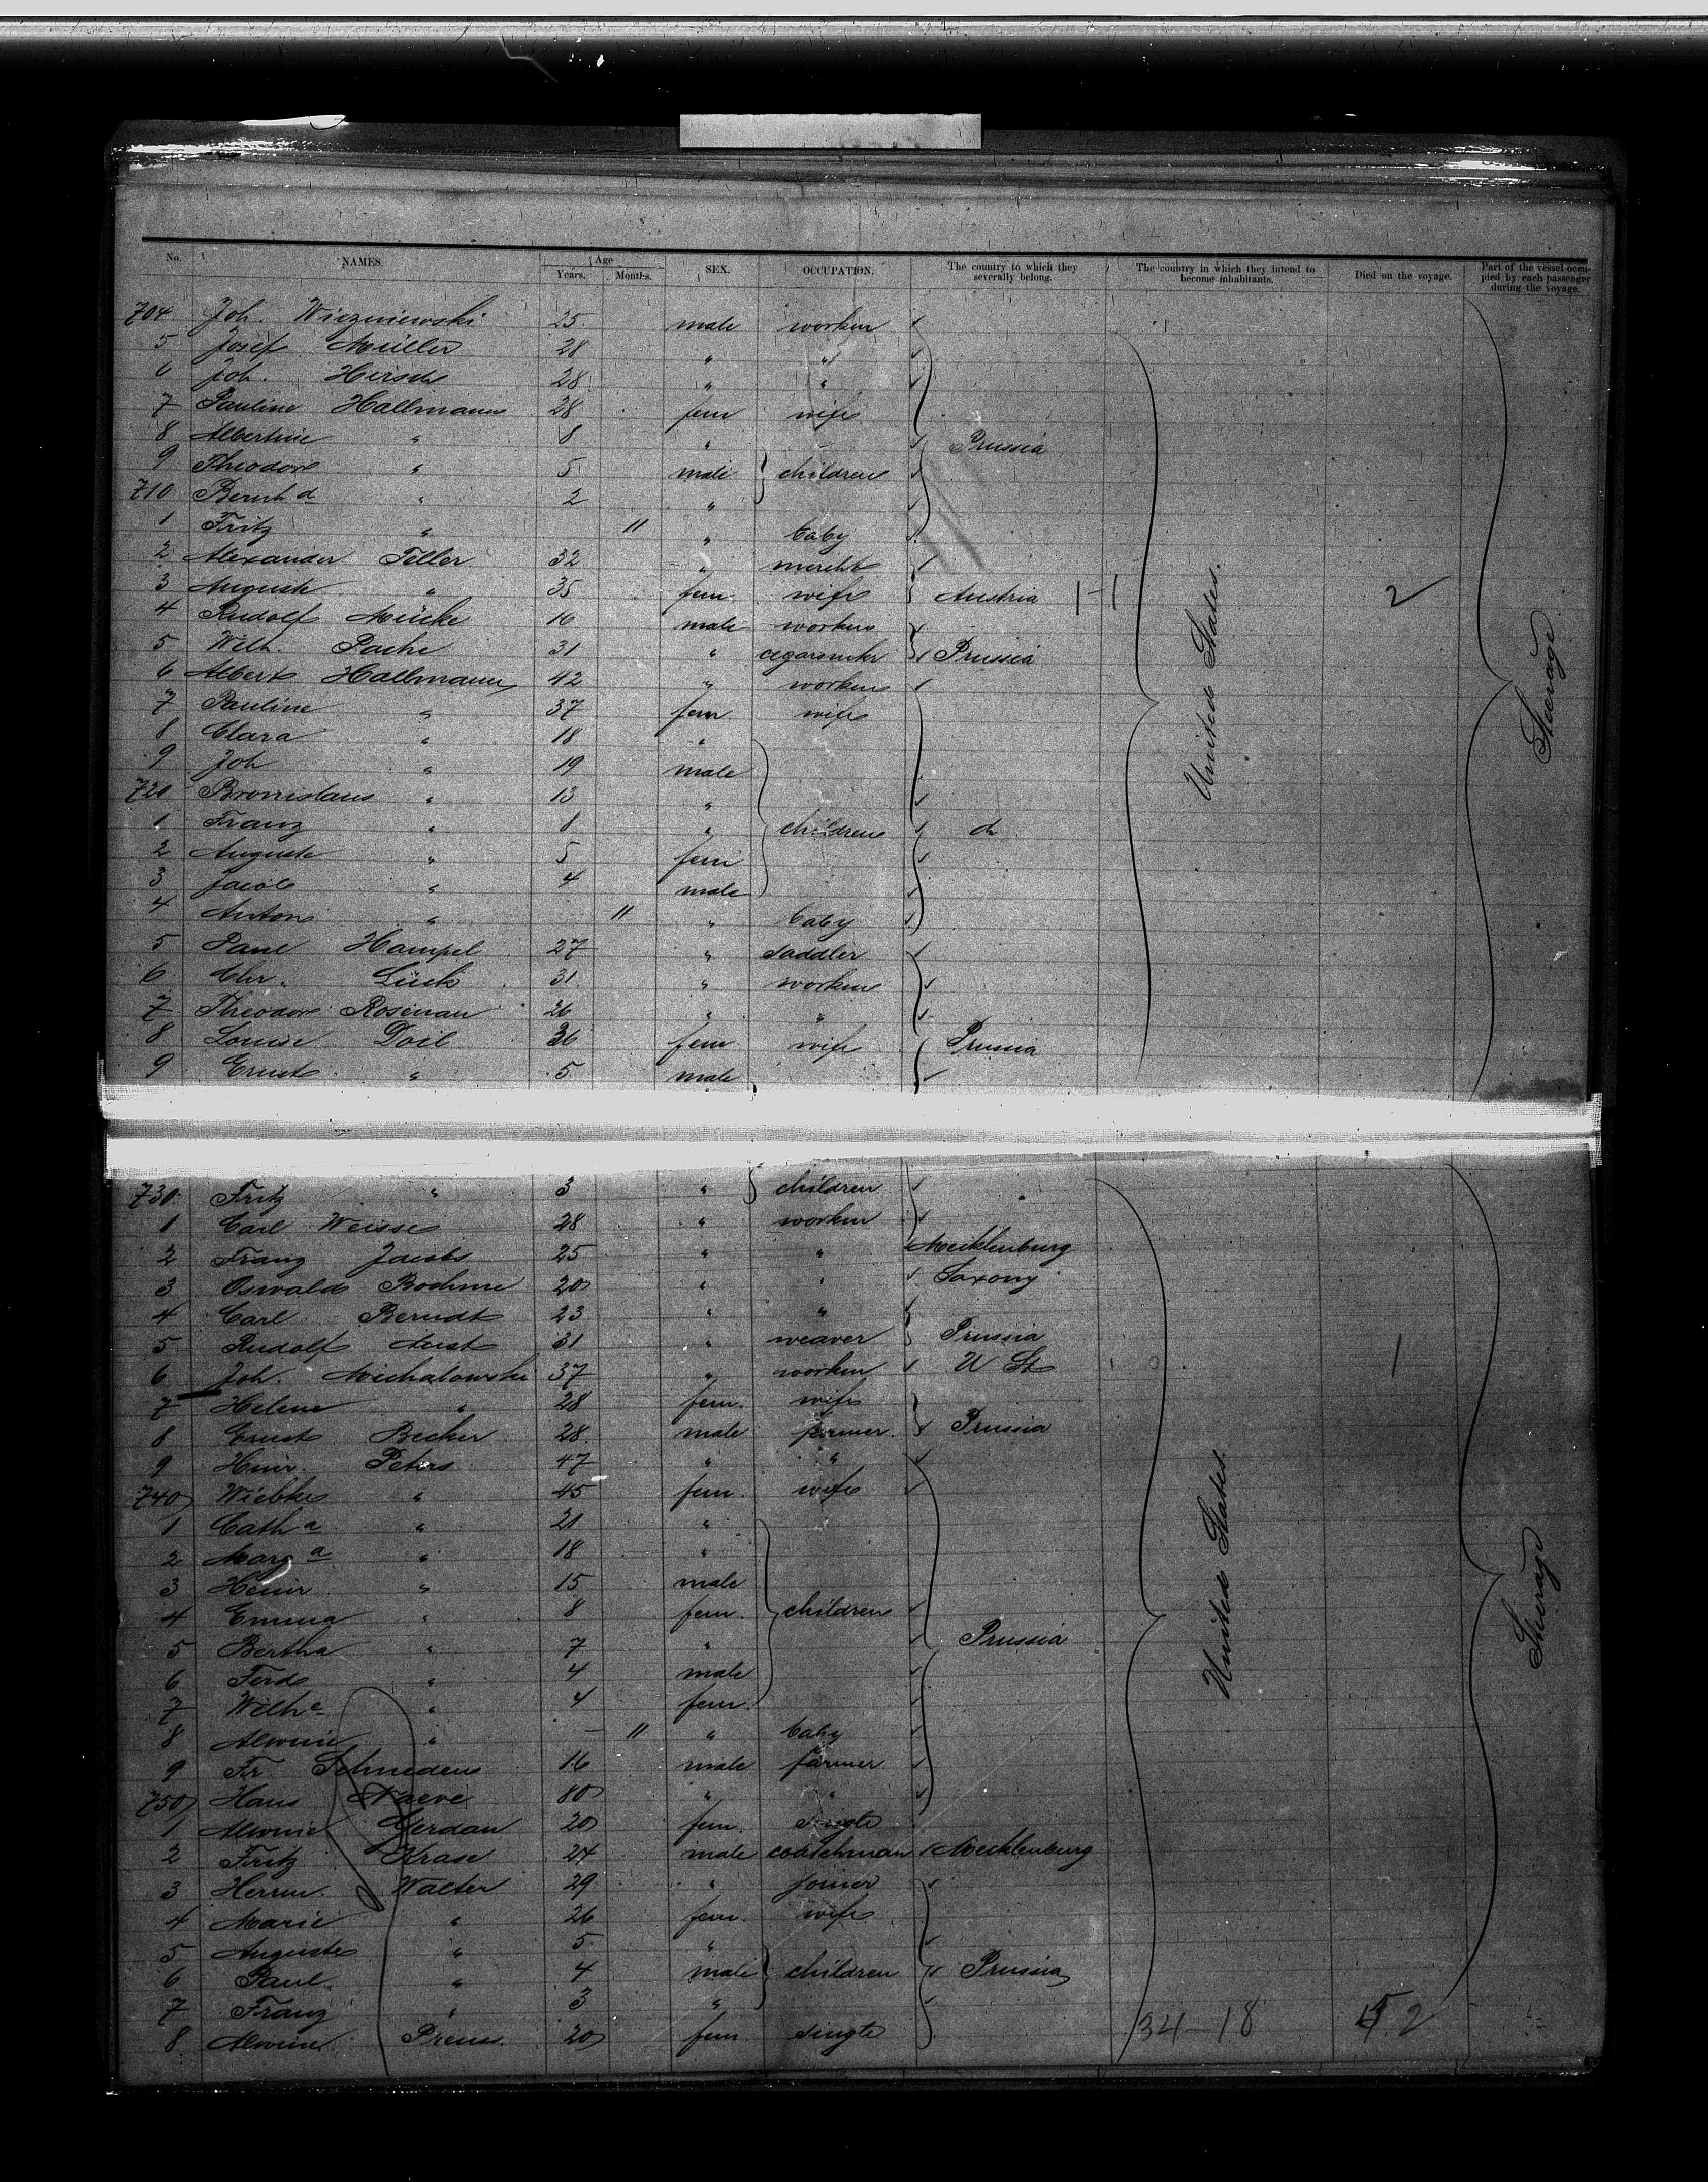 No. NAMES. Age Years. Months. SEX. OCCUPATION. The country to which they severally belong. The country in which they intend to become inhabitants. Died on the voyage. Part of the vessel occupied by each passenger during the voyage.
704 Joh. Wiezniewski 25 male worker
5 Josef Müller 28 " "
6 Joh. Hirsch 28 " "
7 Pauline Hallmann 28 fem wife
8 Albertine " 8 " Prussia
9 Theodor " 5 male children
710 Bernhd " 2 "
1 Fritz " 11 " baby
2 Alexander Teller 32 " mercht
3 Auguste " 35 fem. wife Austria 1-1 United States. 2 Steerage
4 Rudolf Mücke 16 male worker
5 Wilh. Pache 31 " cigarmkr Prussia
6 Albert Hallmann 42 " worker
7 Pauline " 37 fem. wife
8 Clara " 18 "
9 Joh " 19 male
720 Bronislaus " 13 "
1 Franz " 8 " children do
2 Auguste " 5 fem
3 Jacob " 4 male
4 Anton " 11 " baby
5 Paul Hampel 27 " saddler
6 Chr. Lück 31 " worker
7 Theodor Rosenau 26 " "
8 Louise Doil 36 fem wife Prussia
9 Ernst " 5 male
730 Fritz " 3 " children "
1 Carl Weisse 28 " worker
2 Franz Jacobs 25 " " Mecklenburg
3 Oswald Boehme 20 " " Saxony
4 Carl Berndt 23 " "
5 Rudolf Aust 31 " weaver Prussia
6 Joh. Michalowski 37 " worker U St 1
7 Helene " 28 fem. wife
8 Ernst Becker 28 male farmer Prussia
9 Heinr. Peters 47 " "
740 Wiebke " 45 fem. wife
1 Catha " 21 "
2 Marga " 18 "
3 Heinr " 15 male United States. Steerage
4 Emma " 8 fem. children
5 Bertha " 7 " Prussia
6 Ferd " 4 male
7 Wilhe " 4 fem.
8 Alwine " - 11 " baby
9 Fr Schnedens 16 male farmer
750 Hans Naeve 80 " "
1 Alwine Gerdau 20 fem. single
2 Fritz Krase 24 male coatchman Mecklenburg
3 Herrm. Walter 29 " joiner
4 Marie " 26 fem. wife
5 Auguste " 5 "
6 Paul " 4 male children Prussia
7 Franz " 3 "
8 Alwine Preuss. 20 fem single 34-18